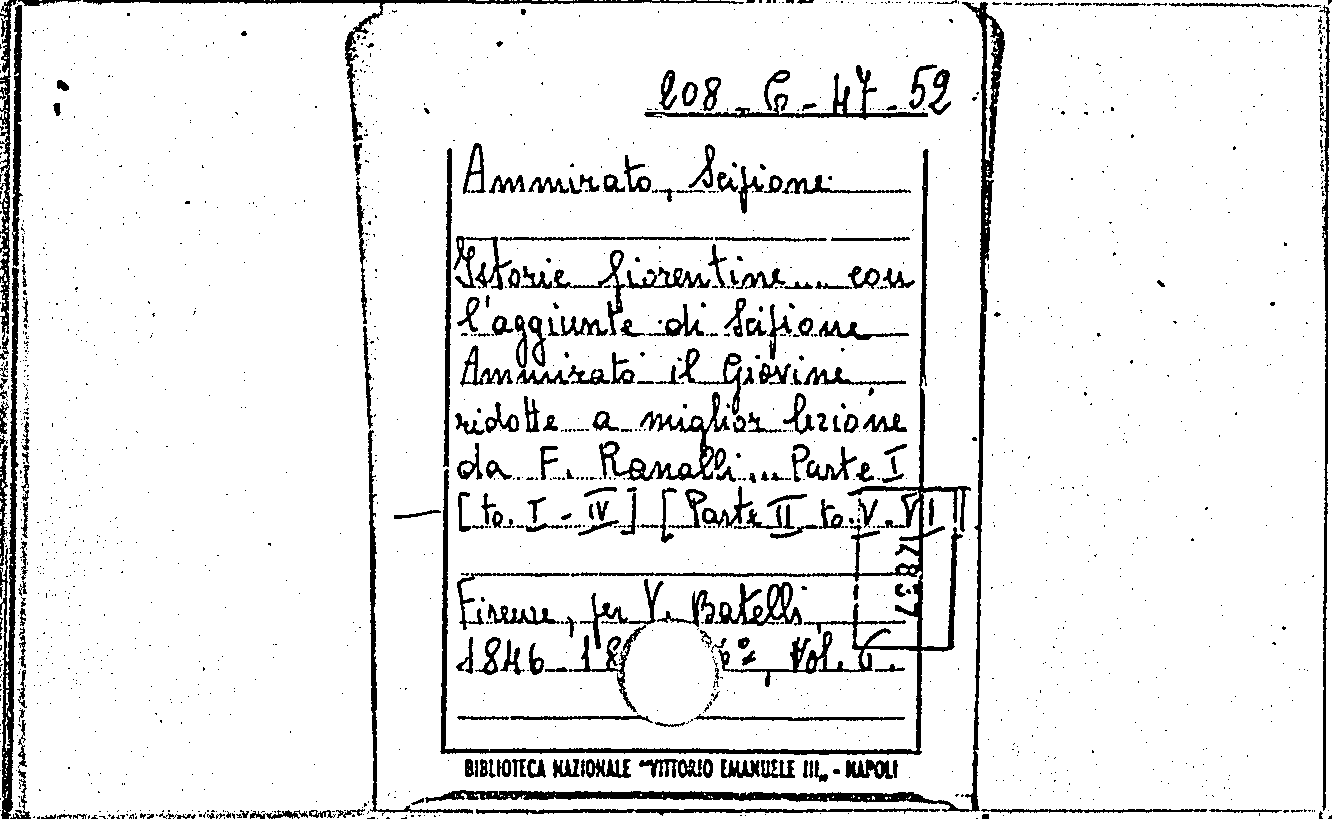 208 - C - 47 - 52
Ammirato, Scipione
Istorie fiorentine... con
l'aggiunte di Scipione
Ammirato il Giovine,
ridotte a miglior lezione
da F. Ranalli... Parte I
[to. I - IV] [Parte II to. V. VI]
14837
Firenze, per V. Batelli,
1846-18 6º, Vol. 6.
BIBLIOTECA NAZIONALE "VITTORIO EMANUELE III„ - NAPOLI